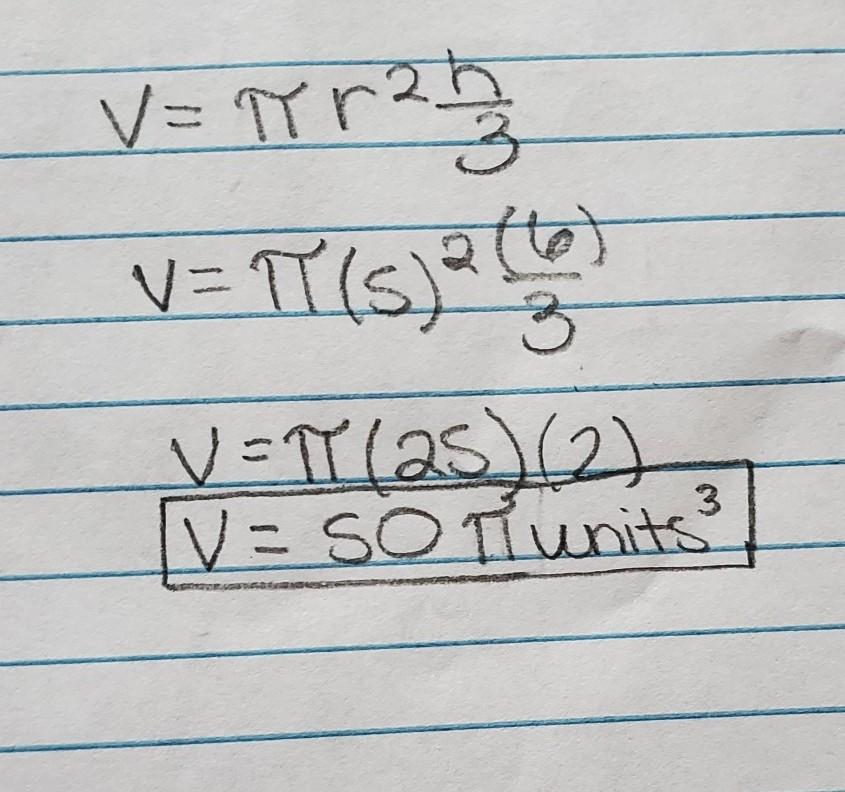 V = πr² h/3
V = π(5)² (6)/3
V = π(25)(2)
V = 50 π units³